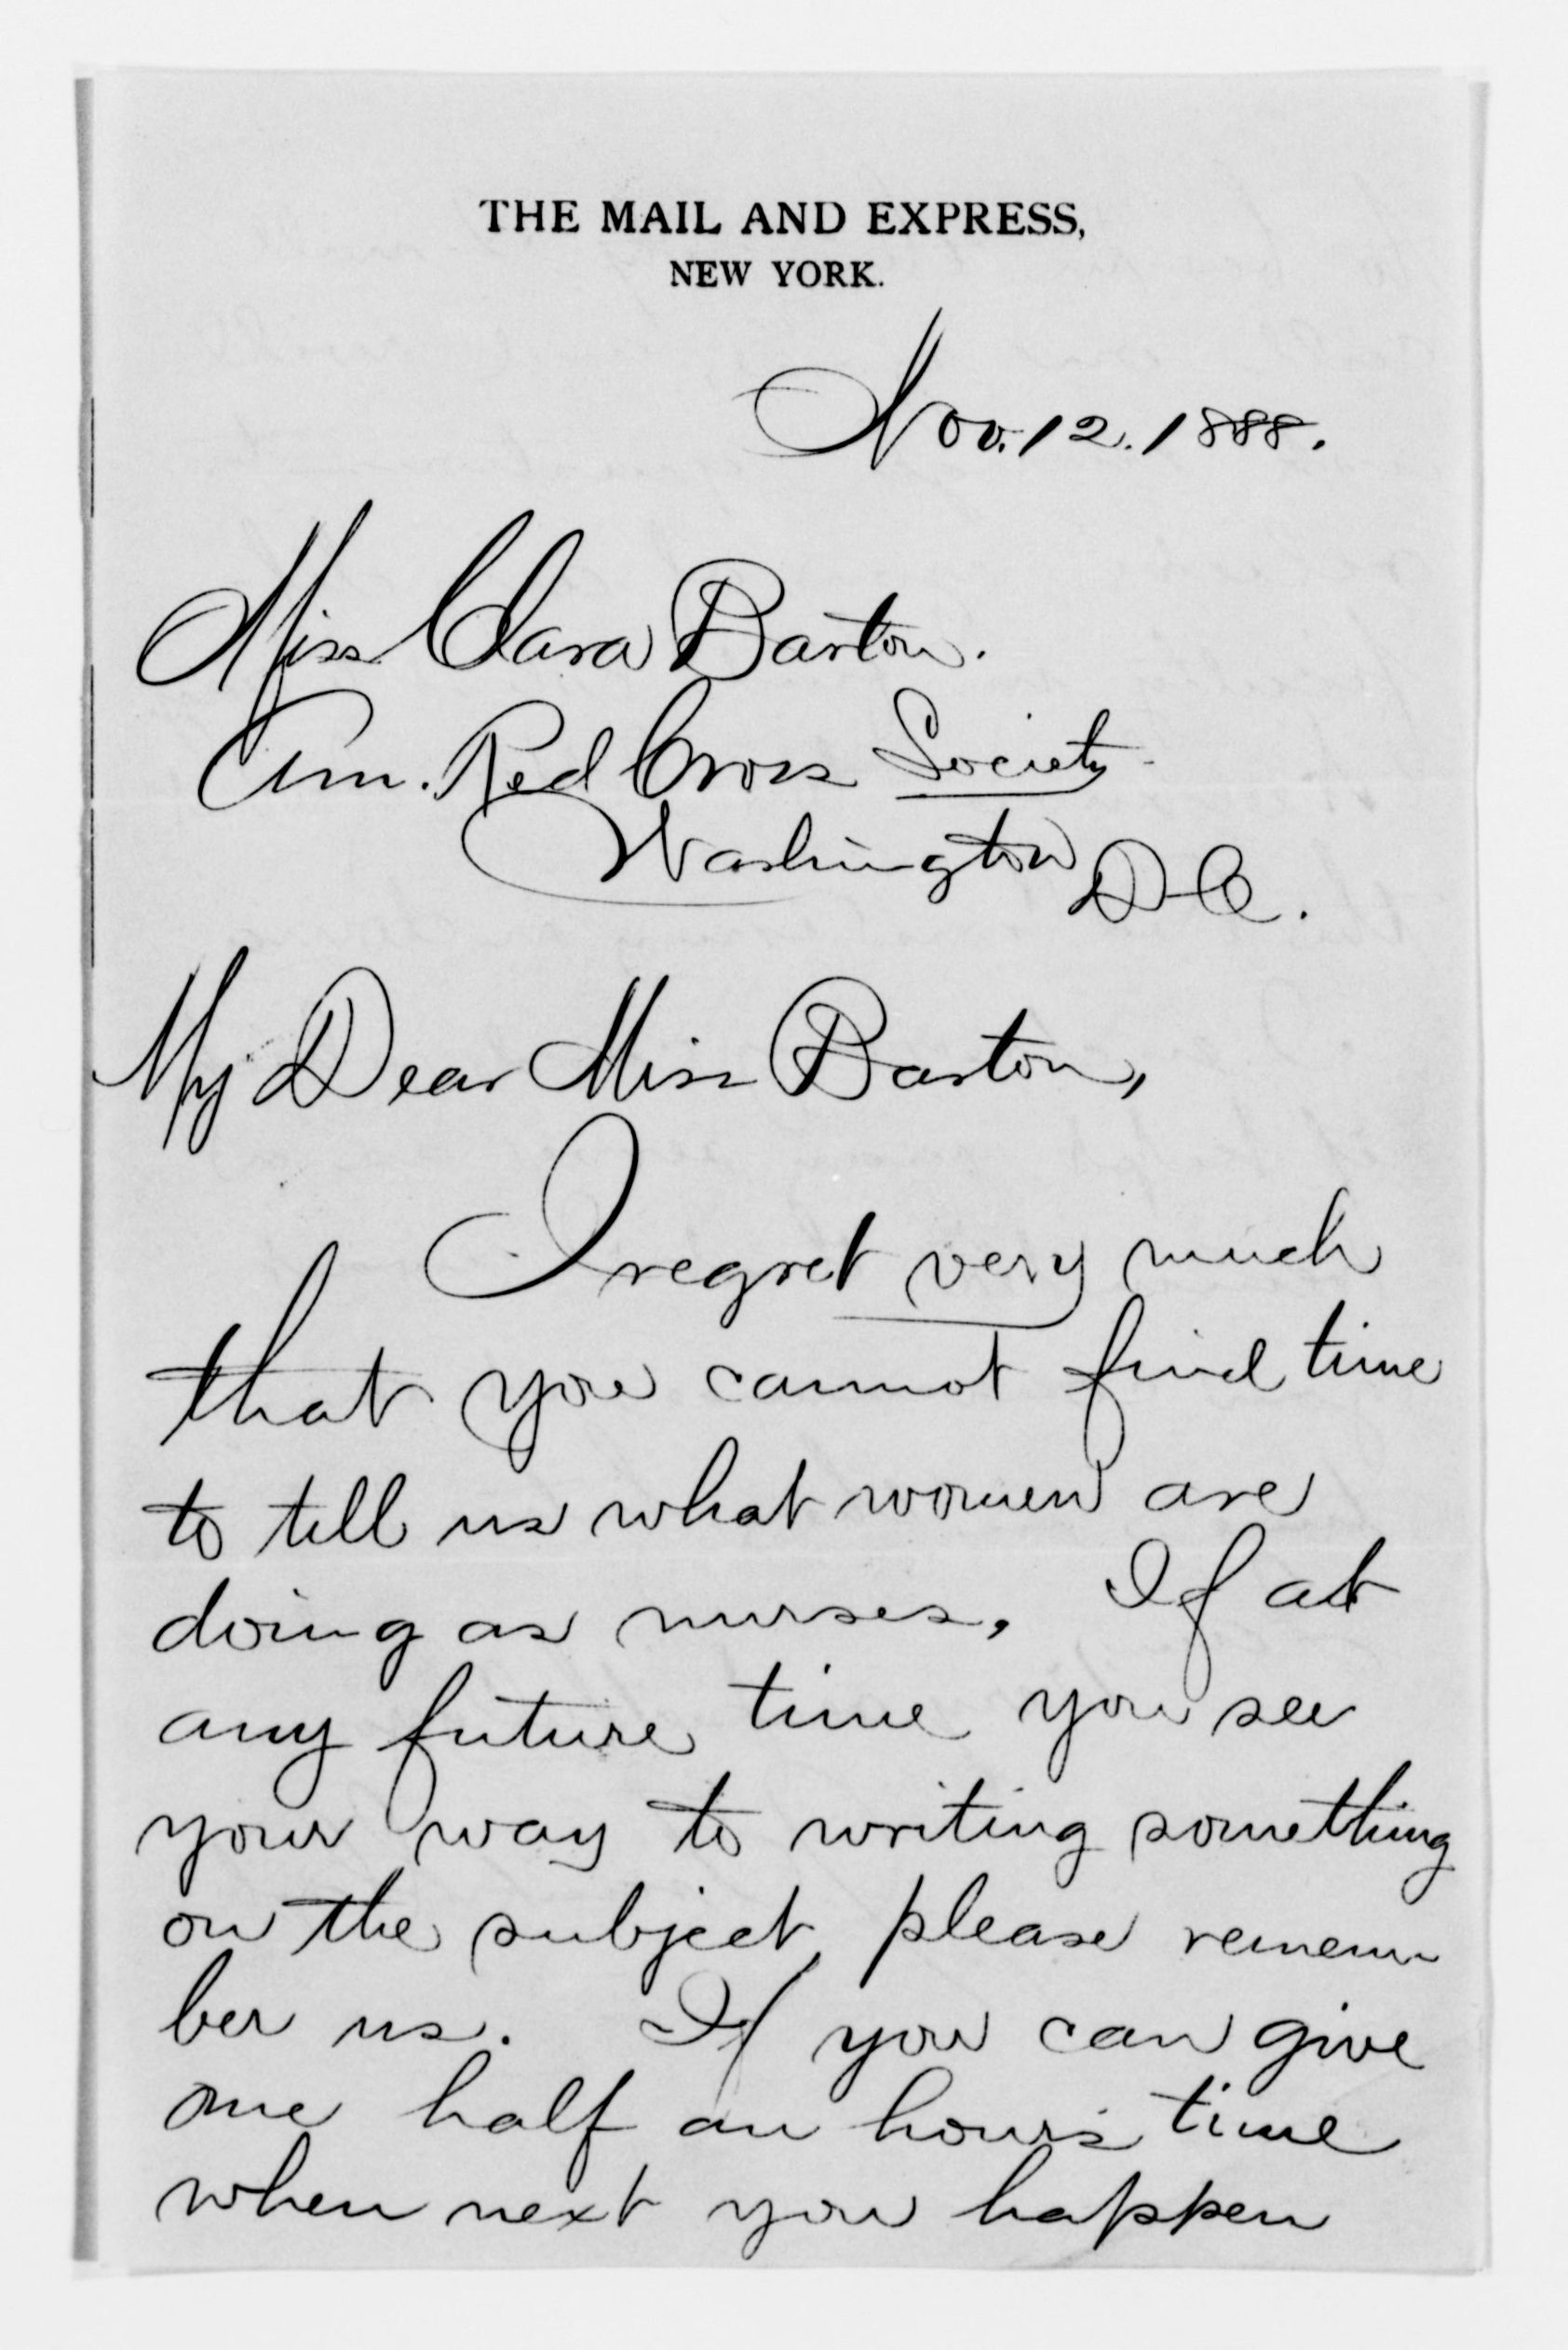 THE MAIL AND EXPRESS,
NEW YORK.
Nov. 12. 1888.
Miss Clara Barton.
Am. Red Cross Society
Washington D.C.
My Dear Miss Barton,
I regret very much
that you cannot find time
to tell us what women are
doing as nurses. If at
any future time you see
your way to writing something
on the subject, please remem
ber us. If you can give
one half an hour's time
when next you happen